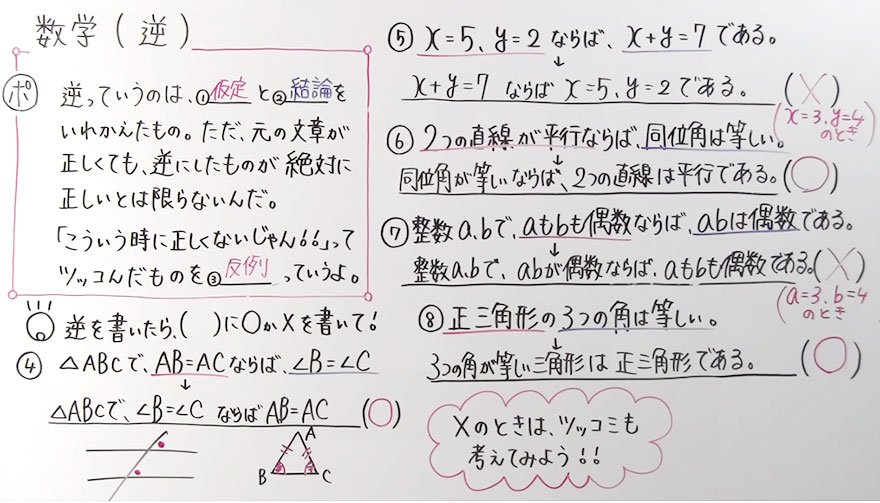 数学（逆）
ポ 逆っていうのは、①仮定と②結論を
いれかえたもの。ただ、元の文章が
正しくても、逆にしたものが絶対に
正しいとは限らないんだ。
「こういう時に正しくないじゃん!!」って
ツッコんだものを③反例っていうよ。
逆を書いたら、( )に○か×を書いて!
④ △ABCで、AB=ACならば、∠B=∠C
↓
△ABCで、∠B=∠C ならば AB=AC (○)
A
B C
⑤ x=5、y=2 ならば、x+y=7 である。
↓
x+y=7 ならば x=5、y=2 である。 (×)
(x=3、y=4
のとき)
⑥ 2つの直線が平行ならば、同位角は等しい。
↓
同位角が等しいならば、2つの直線は平行である。(○)
⑦ 整数a、bで、aもbも偶数ならば、abは偶数である。
↓
整数a、bで、abが偶数ならば、aもbも偶数である。(×)
(a=3、b=4
のとき)
⑧ 正三角形の3つの角は等しい。
↓
3つの角が等しい三角形は 正三角形である。 (○)
×のときは、ツッコミも
考えてみよう!!